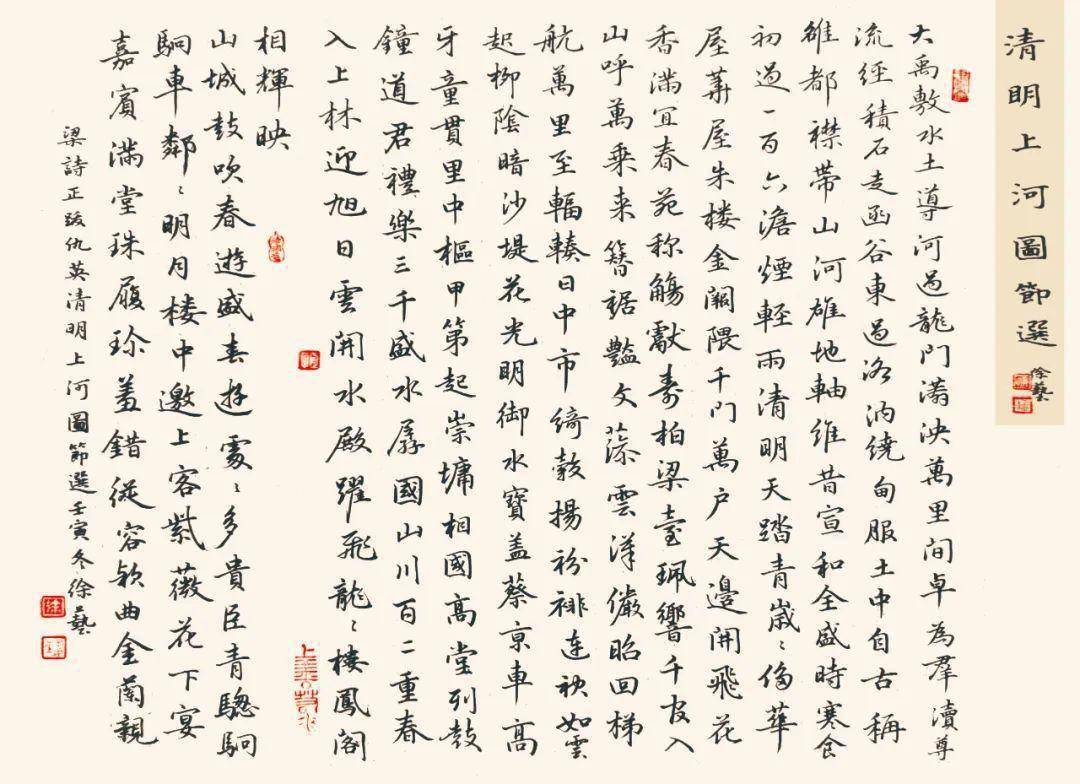 清明上河圖節選
徐藝
大禹敷水土導河過龍門瀰泱萬里間卓為羣瀆尊
流經積石走函谷東過洛汭繞甸服土中自古稱
雒都襟帶山河雄地軸維昔宣和全盛時寒食
初過一百六澹煙輕雨清明天踏青歲〻侈華
屋華屋朱樓金闕隈千門萬戶天邊開飛花
香滿宜春苑称觴獻壽柏梁臺珮響千官入
山呼萬乘来簪裾豔文藻雲漢儼昭回梯
航萬里至輻輳日中市綺縠揚袀褂连袂如雲
起柳陰暗沙堤花光明御水寶盖蔡京車高
牙童貫里中樞甲第起崇墉相國高堂列鼓
鐘道君禮樂三千盛水孱國山川百二重春
入上林迎旭日雲開水殿躍飛龍〻樓鳳阁
相輝映
山城鼓吹春遊盛春遊處〻多貴臣青驄駉
駉車鄰〻明月楼中邀上客紫薇花下宴
嘉賓滿堂珠履珍羞錯従容欵曲金蘭親
梁詩正跋仇英清明上河圖節選壬寅冬徐藝